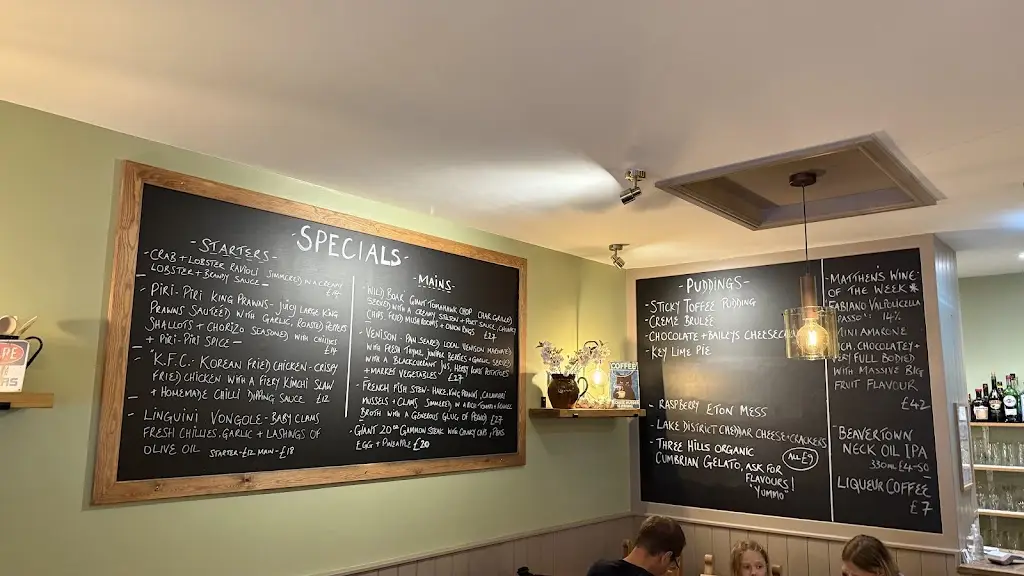 SPECIALS
-STARTERS-
- CRAB + LOBSTER RAVIOLI SIMMERED IN A CREAMY
LOBSTER + BRANDY SAUCE -
- PIRI-PIRI KING PRAWNS - JUICY LARGE KING
PRAWNS SAUTÉED WITH GARLIC, ROASTED PEPPERS
SHALLOTS + CHORIZO SEASONED WITH CHILLIES
+ PIRI-PIRI SPICE - £14
- 'K.F.C.' KOREAN FRIED CHICKEN - CRISPY
FRIED CHICKEN WITH A FIERY KIMCHI SLAW
+ HOMEMADE CHILLI DIPPING SAUCE £12
- LINGUINI VONGOLE - BABY CLAMS
FRESH CHILLIES, GARLIC + LASHINGS OF
OLIVE OIL STARTER - £12 MAIN - £18
-MAINS-
- WILD BOAR GIANT TOMAHAWK CHOP CHAR GRILLED
SERVED WITH A CREAMY STILTON + PORT SAUCE, CHUNKY
CHIPS, FRIED MUSHROOMS + ONION RINGS £27
- VENISON - PAN SEARED LOCAL VENISON MARINATED
WITH FRESH THYME, JUNIPER BERRIES + GARLIC SERVED
WITH A BLACKCURRANT JUS, HERBY POTATOES
+ MARKET VEGETABLES £27
- FRENCH FISH STEW - HAKE, KING PRAWNS, CALAMARI
MUSSELS + CLAMS SIMMERED IN A RICH TOMATO +
BROTH WITH A GENEROUS GLUG OF PERNOD £27
- GIANT 20oz GAMMON STEAK WITH CHUNKY CHIPS, PEAS
EGG + PINEAPPLE £20
COFFEE
-PUDDINGS-
- STICKY TOFFEE PUDDING
- CREME BRULEE
- CHOCOLATE + BAILEYS CHEESECAKE
- KEY LIME PIE
- RASPBERRY ETON MESS
- LAKE DISTRICT CHEDDAR CHEESE + CRACKERS
- THREE HILLS ORGANIC ALL £9
CUMBRIAN GELATO, ASK FOR
FLAVOURS!
"YUMMO"
MATTHEW'S WINE
OF THE WEEK *
FABIANO VALPOLICELLA
14%
MINI AMARONE
RICH, CHOCOLATEY +
VERY FULL BODIED
WITH MASSIVE BIG
FRUIT FLAVOUR
£42
BEAVERTOWN
NECK OIL IPA
330ml £4-50
LIQUEUR COFFEE
£7